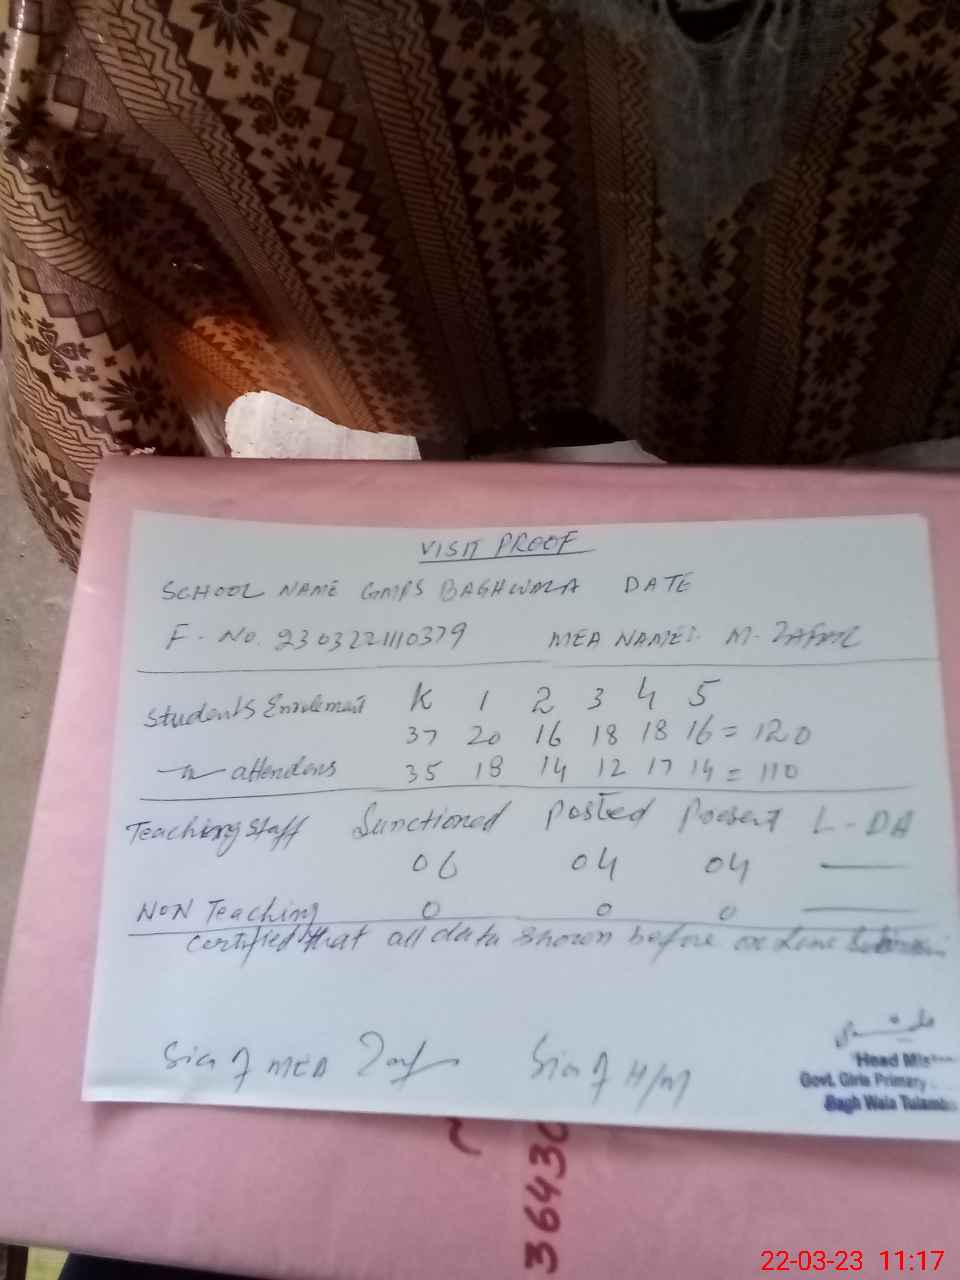 VISIT PROOF
SCHOOL NAME GMPS BAGHWALA DATE
F. No. 230322110379 MEA NAME: M. ZAFAR
Students Enrolement K 1 2 3 4 5
37 20 16 18 18 16 = 120
attendens 35 18 14 12 17 14 = 110
Teaching staff Sunctioned posted Poesent L - DA
06 04 04 —
NON Teaching 0 0 0 —
Certified that all data shown before on line
Sig of MEA Sig of H/M
Head Mis
Govt. Girls Primary
Bagh Wala Tulamba
36430
22-03-23 11:17